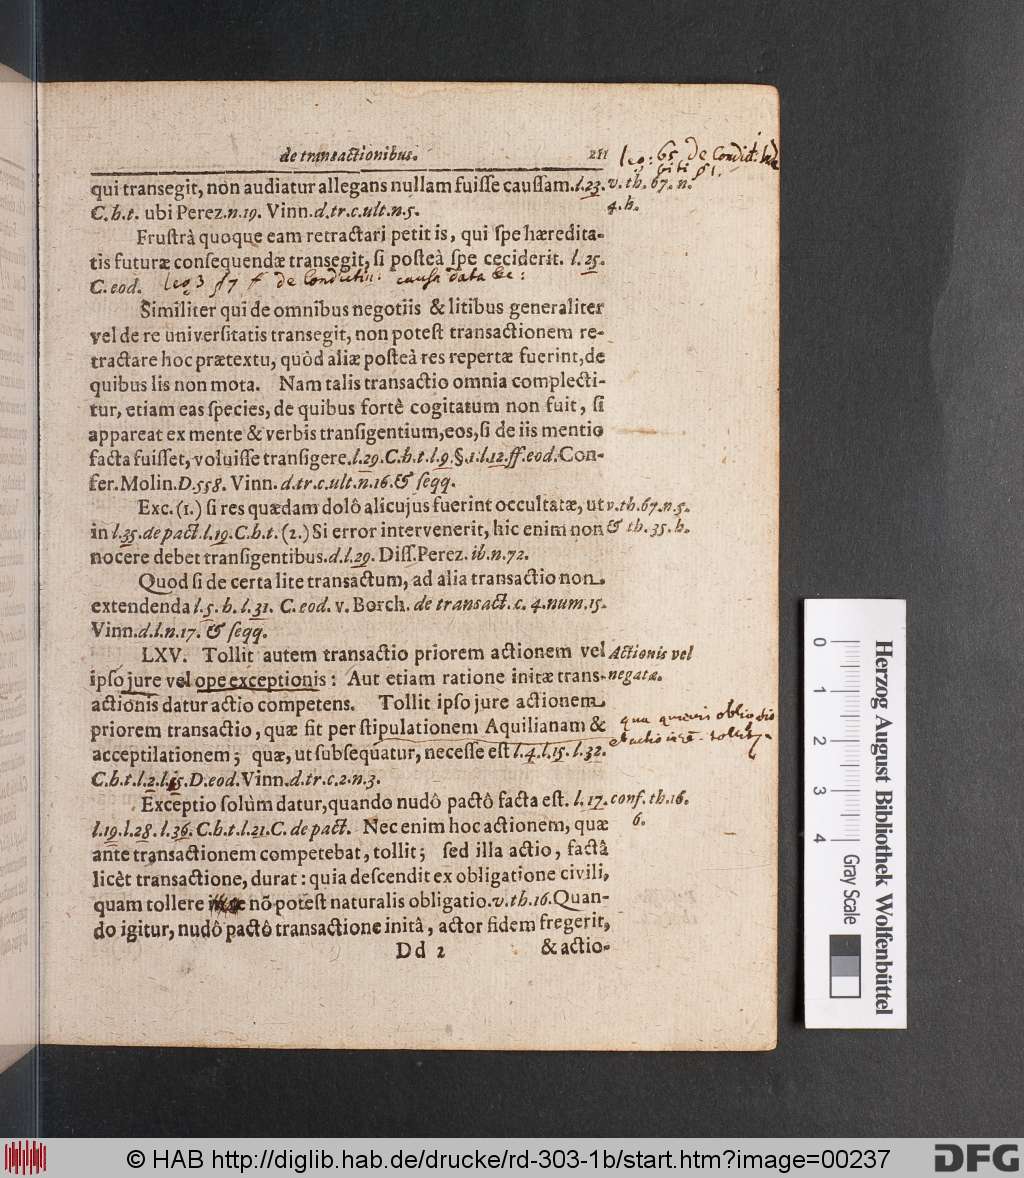 de transactionibus. 211
leg: 65 de Condict: Inde
biti §1.
qui transegit, non audiatur allegans nullam fuiſſe cauſſam. l.23. v. th. 67. n.
C.h.t. ubi Perez.n.19. Vinn.d.tr.c.ult.n.5. 4.h.
Fruſtrà quoque eam retractari petit is, qui ſpe hæredita-
tis futuræ conſequendæ transegit, ſi poſteà ſpe ceciderit. l.25.
C.eod. leg 3 §7 f de Condictin: causa data &c:
Similiter qui de omnibus negotiis & litibus generaliter
vel de re univerſitatis transegit, non poteſt transactionem re-
tractare hoc prætextu, quòd aliæ poſteà res repertæ fuerint, de
quibus lis non mota. Nam talis transactio omnia complecti-
tur, etiam eas ſpecies, de quibus fortè cogitatum non fuit, ſi
appareat ex mente & verbis tranſigentium, eos, ſi de iis mentio
facta fuiſſet, voluiſſe tranſigere.l.29.C.h.t.l.9.§.1.l.12.ff.eod.Con-
fer.Molin.D.558. Vinn.d.tr.c.ult.n.16.& ſeqq.
Exc.(1.) ſi res quædam dolô alicujus fuerint occultatæ, ut v.th.67.n.5.
in l.35.de pact.l.19.C.h.t.(2.) Si error intervenerit, hic enim non & th.35.h.
nocere debet tranſigentibus.d.l.29. Diſſ.Perez.ib.n.72.
Quod ſi de certa lite transactum, ad alia transactio non
extendenda l.5.h.l.31. C.eod. v. Borch. de transact.c. 4.num.15.
Vinn.d.l.n.17. & ſeqq.
LXV. Tollit autem transactio priorem actionem vel Actionis vel
ipſo jure vel ope exceptionis: Aut etiam ratione initæ trans- negatæ.
actionis datur actio competens. Tollit ipſo jure actionem
priorem transactio, quæ fit per ſtipulationem Aquilianam &
acceptilationem; quæ, ut ſubſequatur, neceſſe eſt l.4.l.15.l.32.
C.h.t.l.2.l.15.D.eod.Vinn.d.tr.c.2.n.3.
Exceptio ſolùm datur, quando nudô pactô facta eſt. l.17. conf.th.16.
l.19.l.28.l.36.C.h.t.l.21.C.de pact. Nec enim hoc actionem, quæ 6.
ante transactionem competebat, tollit; ſed illa actio, factâ
licèt transactione, durat: quia deſcendit ex obligatione civili,
quam tollere nõ poteſt naturalis obligatio.v.th.16.Quan-
do igitur, nudô pactô transactione initâ, actor fidem fregerit,
Dd 2 & actio-
0 1 2 3 4
Gray Scale
Herzog August Bibliothek Wolfenbüttel
© HAB http://diglib.hab.de/drucke/rd-303-1b/start.htm?image=00237
DFG